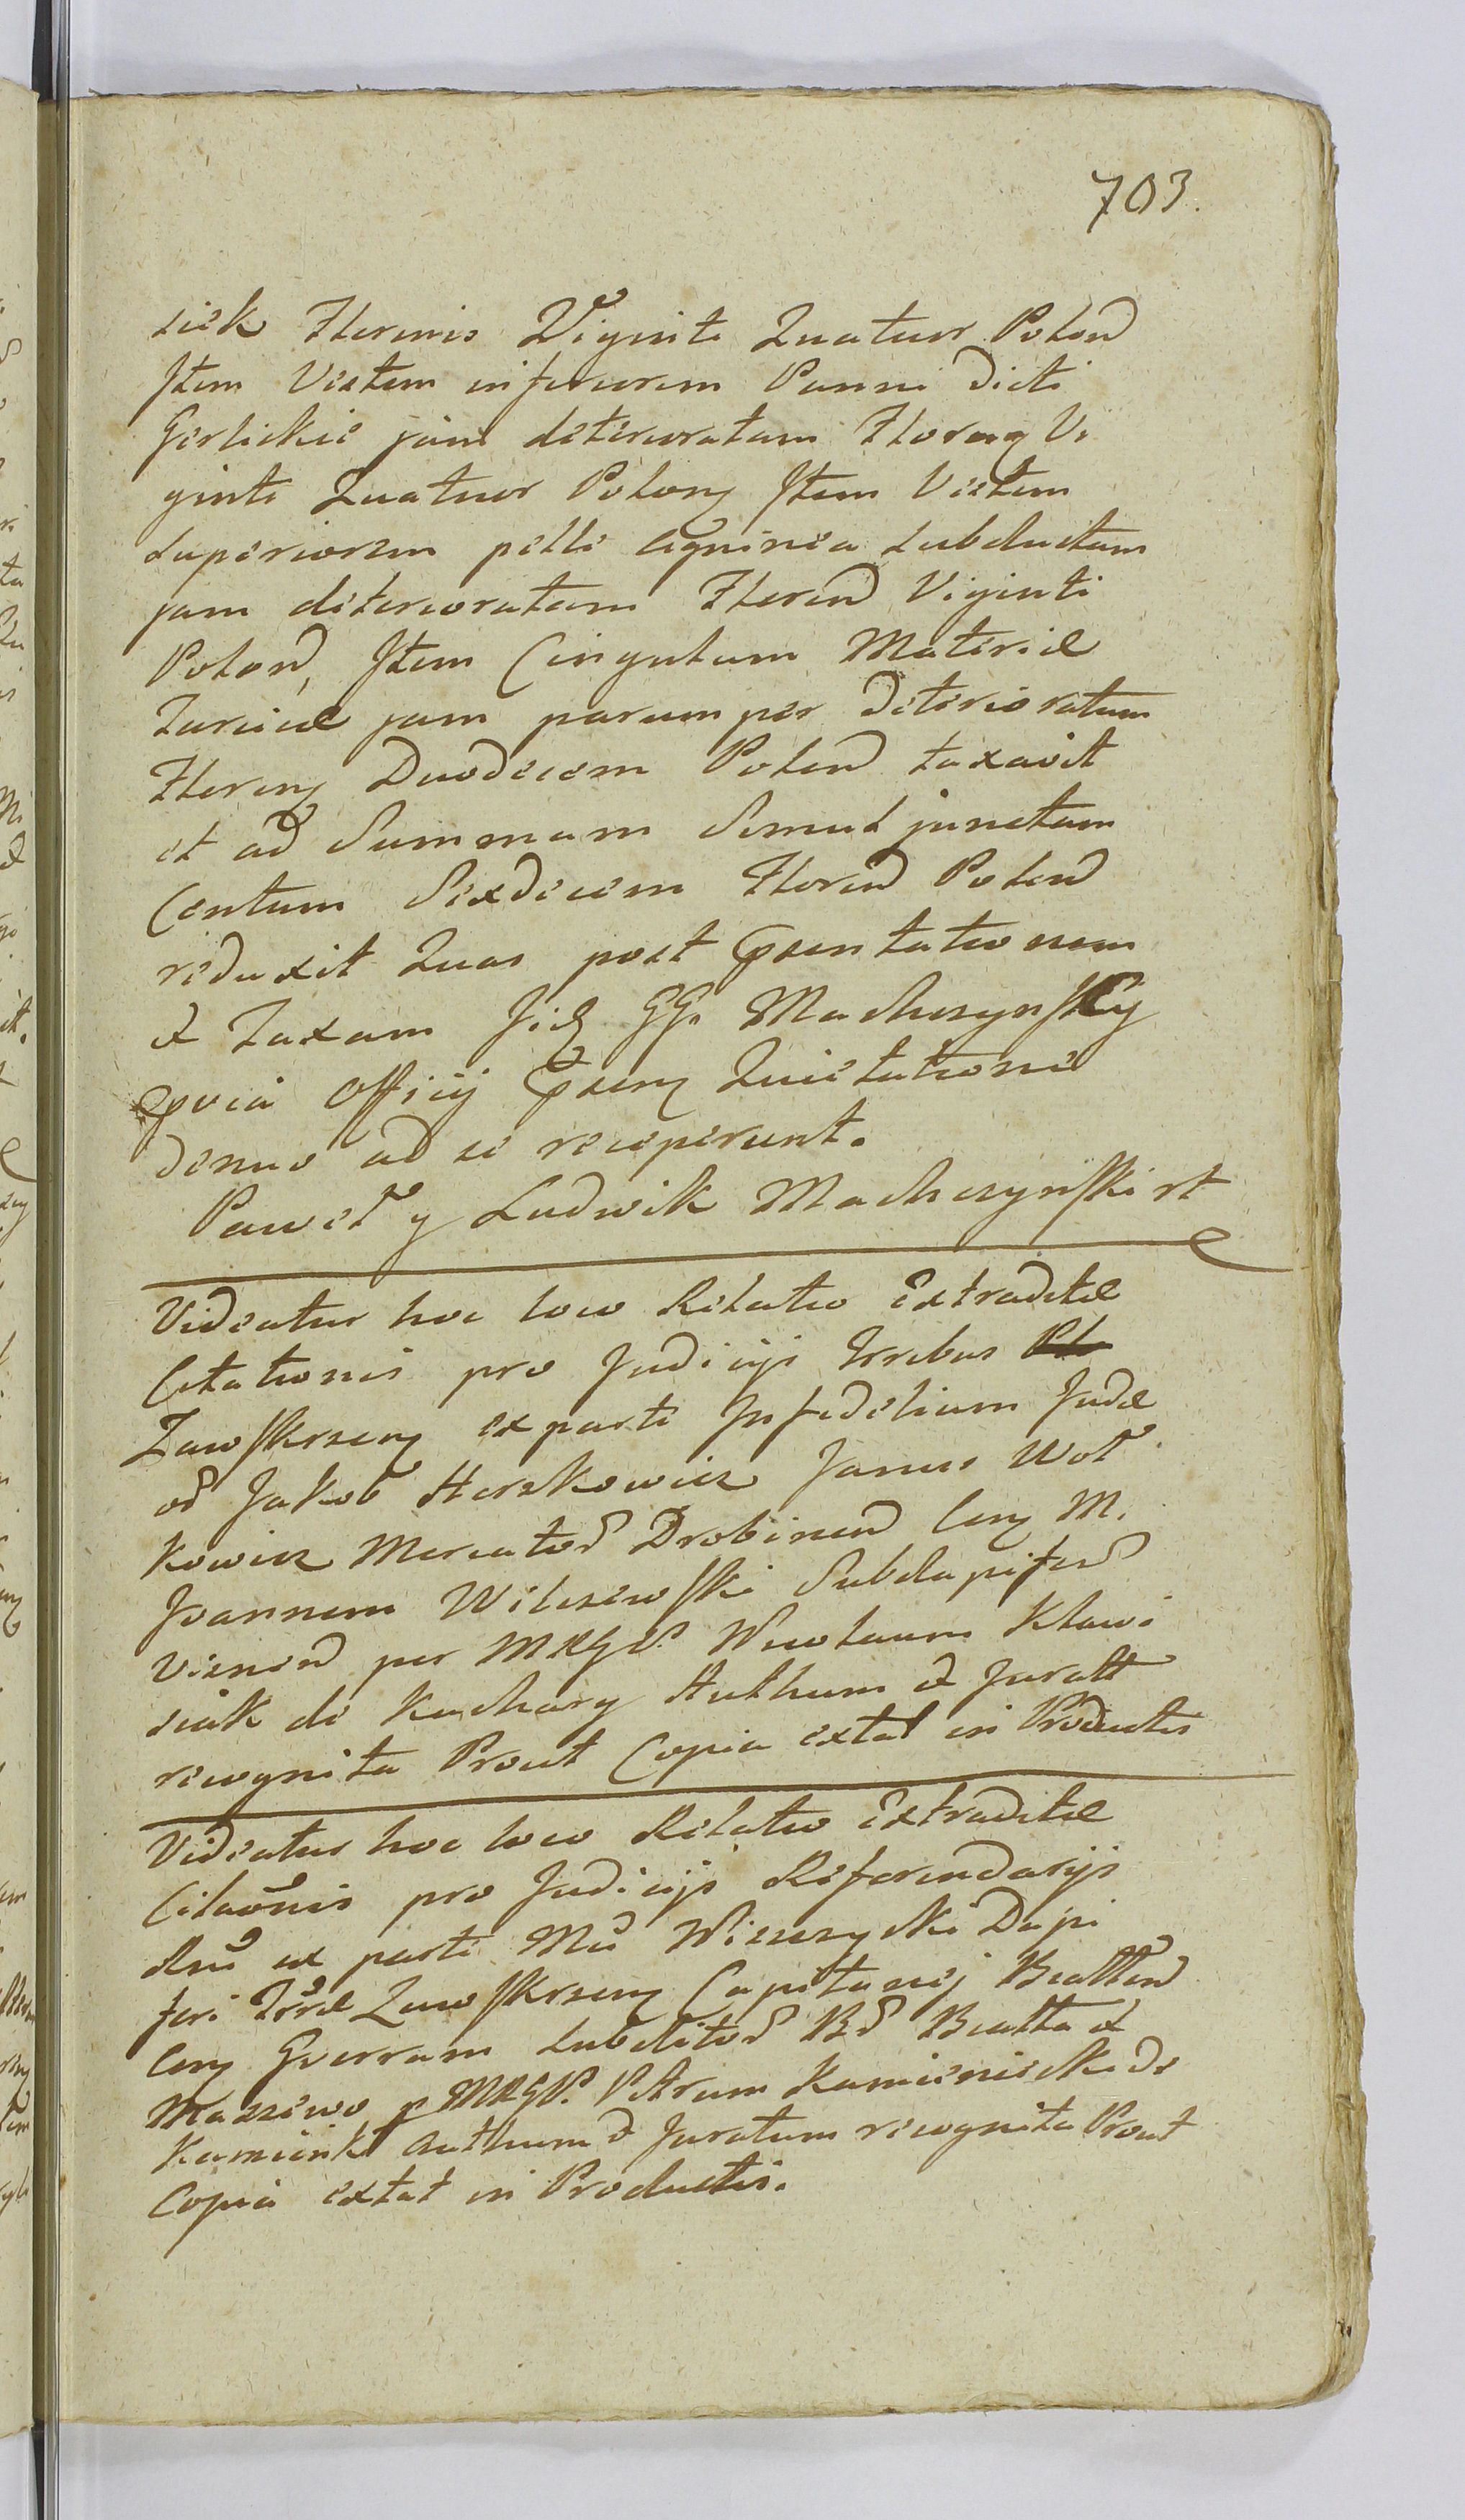 703.
siek Florenis Viginti Quatuor Polon
Item Vestem inferiorem Panni dicti
Gerlickie jam deterioratam Floreny Vi
ginti Quatuor Polony Item Vestem
superiorem pelle agninea subductam
jam deterioratam Floren Viginti
Polon, Item Cingulum Materiæ
Turcicæ jam parumper deterioratum
Floreny Duodecem Polon taxavit
et ad Summam Simul junctam
Centum Sexdecem Floren Polon
reduxit Quas post pæsentationem
et Taxam Jidz GG. Machczynscy
pvia Officij pseny Quietatione
denuo ad se receperunt.
Paweł y Ludwik Machczynski rt
Videatur hoc loco Relatio Extraditæ
Citationis pro Judicijs Trribus
Zawskrzeny ex parte Infidelium Judæ
od Jakob Herszkowicz Janus Wol
kowicz Mercator Drobinen Ceny M.
Joannem Wilczewski Subdapifer
Visnen per MRGP. Nicolaum Klawi
siak de Kuchary Authum et Juratt
recognita Prout Copia extat in Productis
Videatur hoc loco Relatio Extraditæ
Citaonis pro Judicijs Referendarijs
Rni ex parte Mci Wieszczycki Dapi
feri Træ Zawskrzeny Capitanej
Ceny Gverram subditor Bd et
Maszewo p MRGP. Petrum Kamieniecki de
Kamienki Authum et Juratum recognita Prout
Copia extat in Productis.